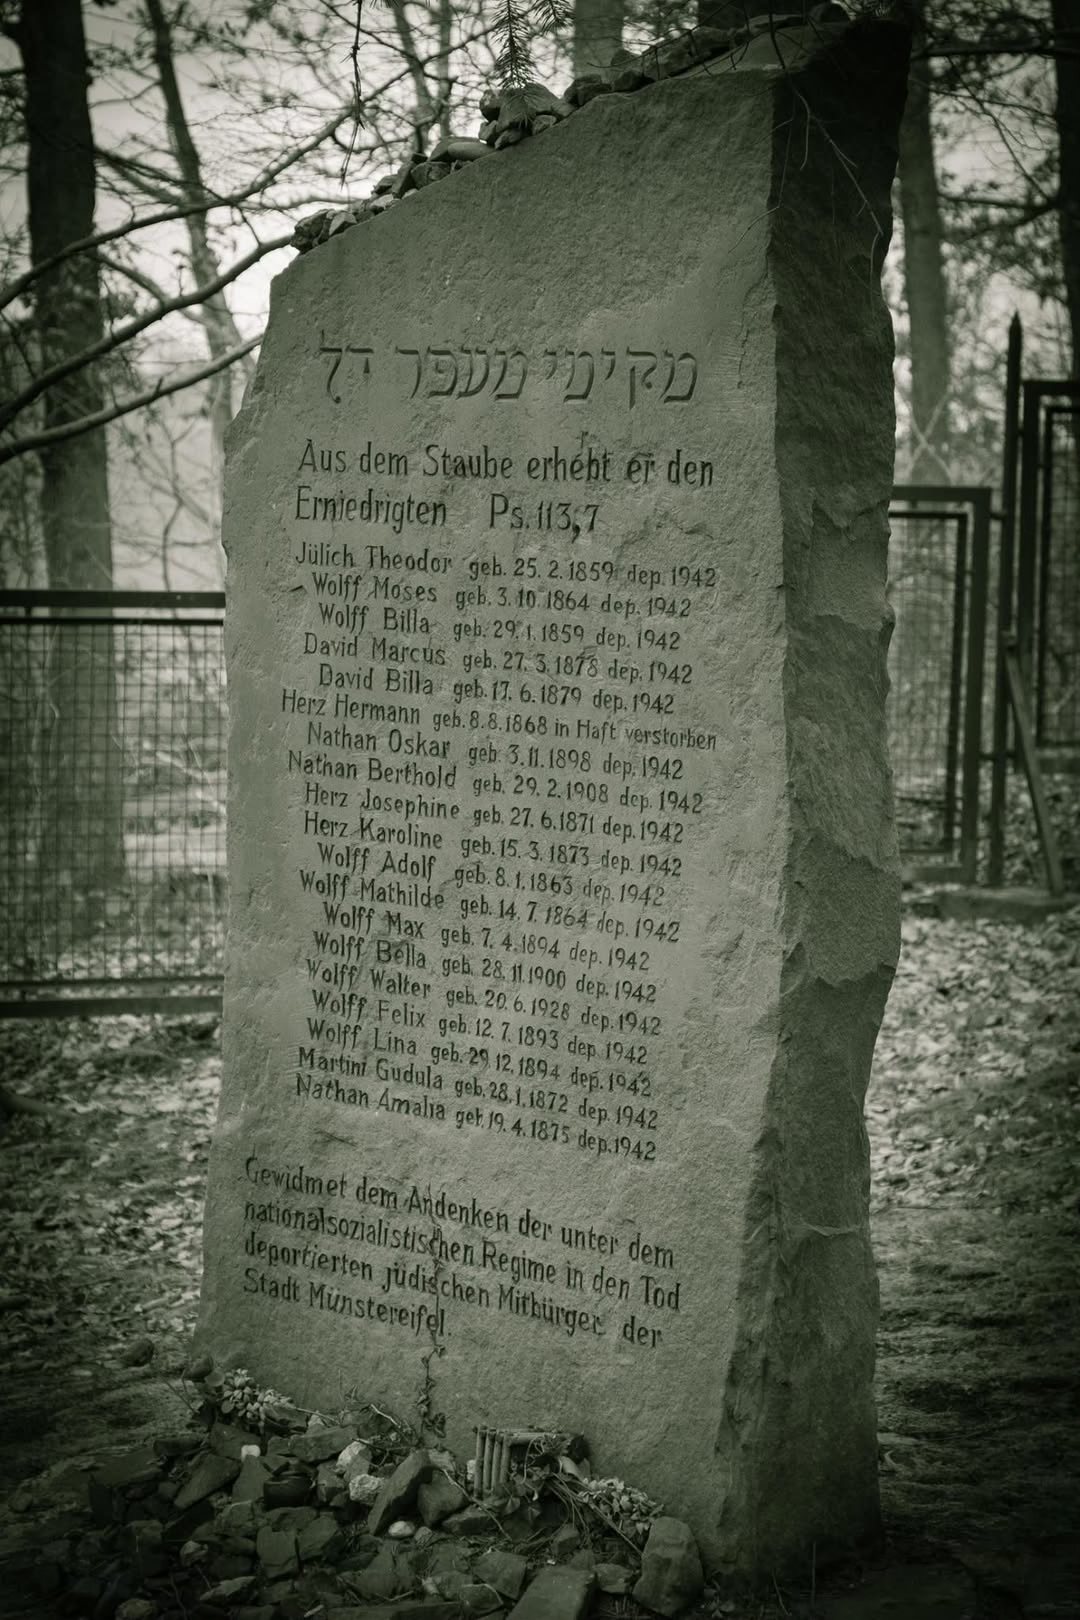 מקימי מעפר דל
Aus dem Staube erhebt er den
Erniedrigten Ps. 113,7
Jülich Theodor geb. 25. 2. 1859 dep. 1942
Wolff Moses geb. 3. 10. 1864 dep. 1942
Wolff Billa geb. 29. 1. 1859 dep. 1942
David Marcus geb. 27. 3. 1878 dep. 1942
David Billa geb. 17. 6. 1879 dep. 1942
Herz Hermann geb. 8. 8. 1868 in Haft verstorben
Nathan Oskar geb. 3. 11. 1898 dep. 1942
Nathan Berthold geb. 29. 2. 1908 dep. 1942
Herz Josephine geb. 27. 6. 1871 dep. 1942
Herz Karoline geb. 15. 3. 1873 dep. 1942
Wolff Adolf geb. 8. 1. 1863 dep. 1942
Wolff Mathilde geb. 14. 7. 1864 dep. 1942
Wolff Max geb. 7. 4. 1894 dep. 1942
Wolff Bella geb. 28. 11. 1900 dep. 1942
Wolff Walter geb. 20. 6. 1928 dep. 1942
Wolff Felix geb. 12. 7. 1893 dep. 1942
Wolff Lina geb. 29. 12. 1894 dep. 1942
Martini Gudula geb. 28. 1. 1872 dep. 1942
Nathan Amalia geb. 19. 4. 1875 dep. 1942
Gewidmet dem Andenken der unter dem
nationalsozialistischen Regime in den Tod
deportierten jüdischen Mitbürger der
Stadt Münstereifel.